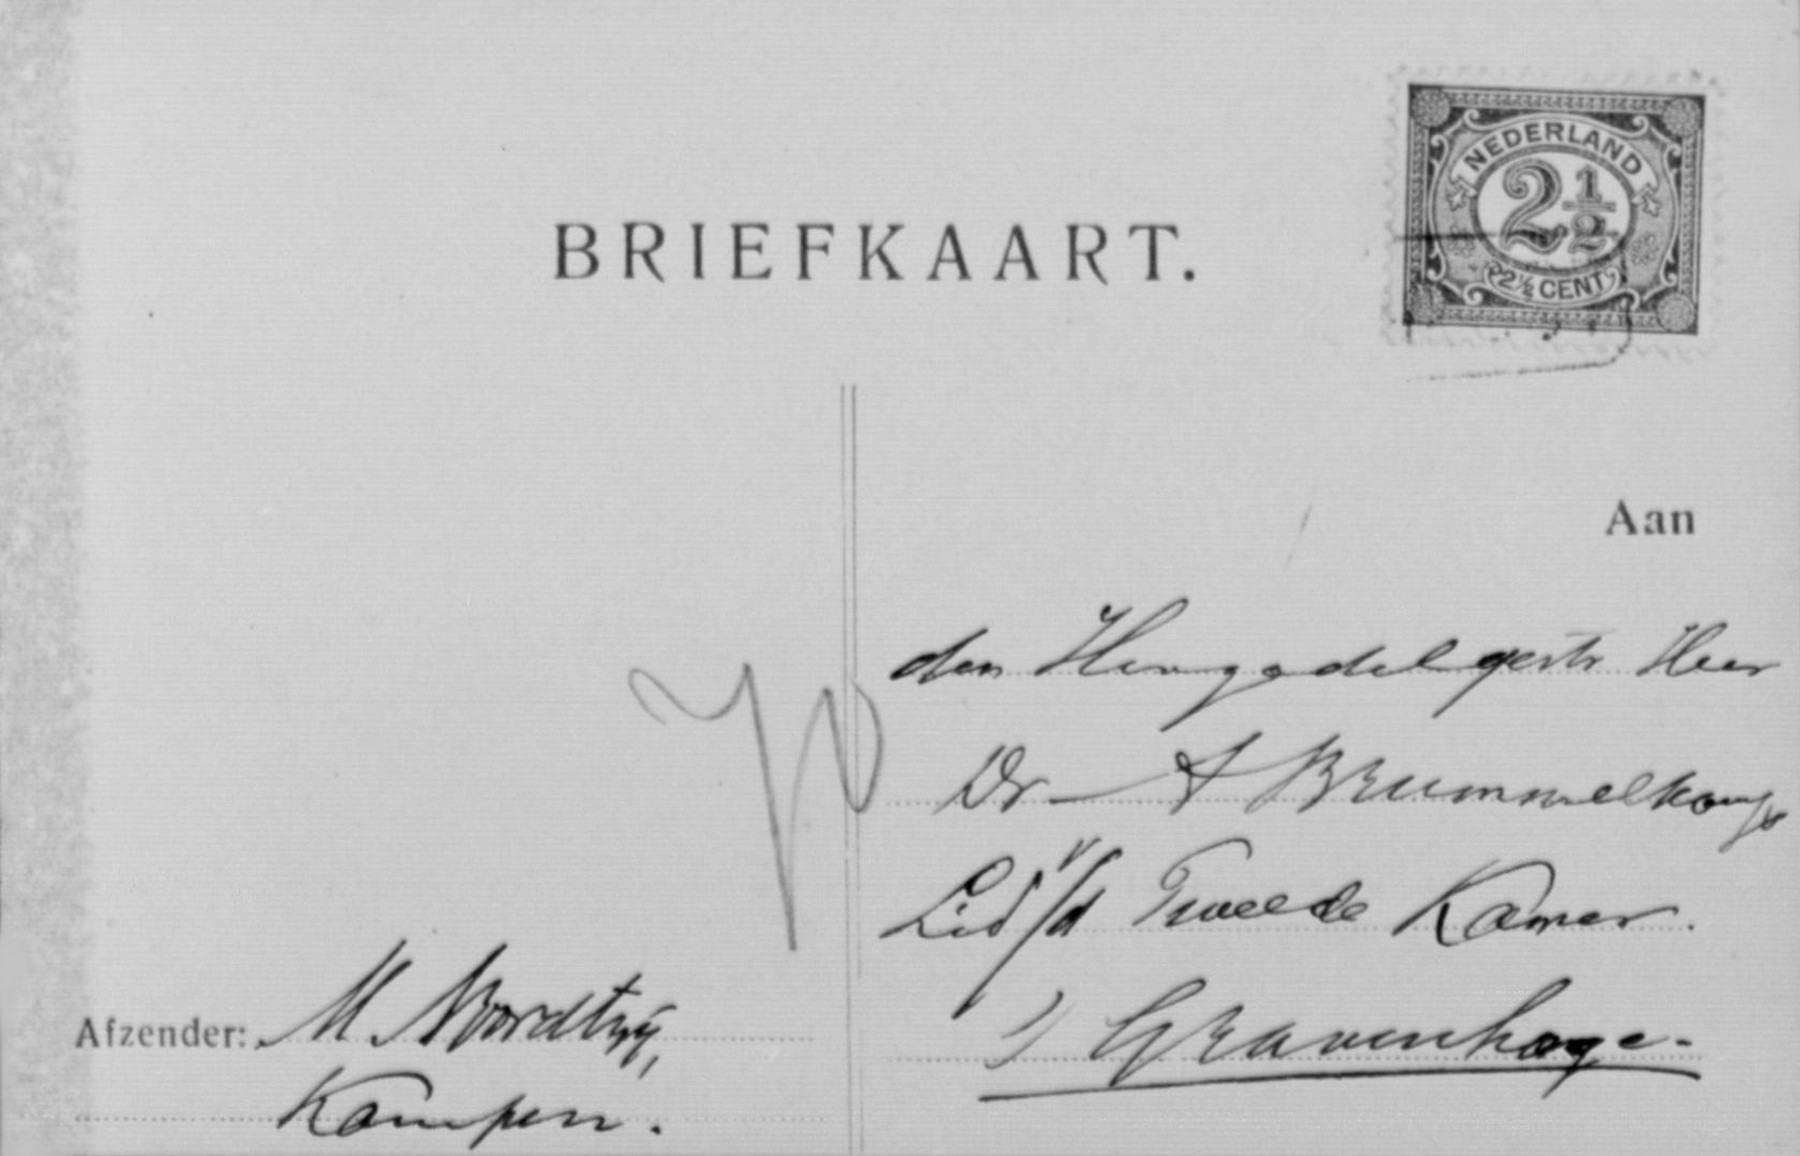 NEDERLAND
2½
2½ CENT
BRIEFKAART.
Aan
den Hoogedelgestr Heer
Dr A Brummelkamp
Lid v/d Tweede Kamer.
's Gravenhage.
Afzender: M. Noordtzij,
Kampen.